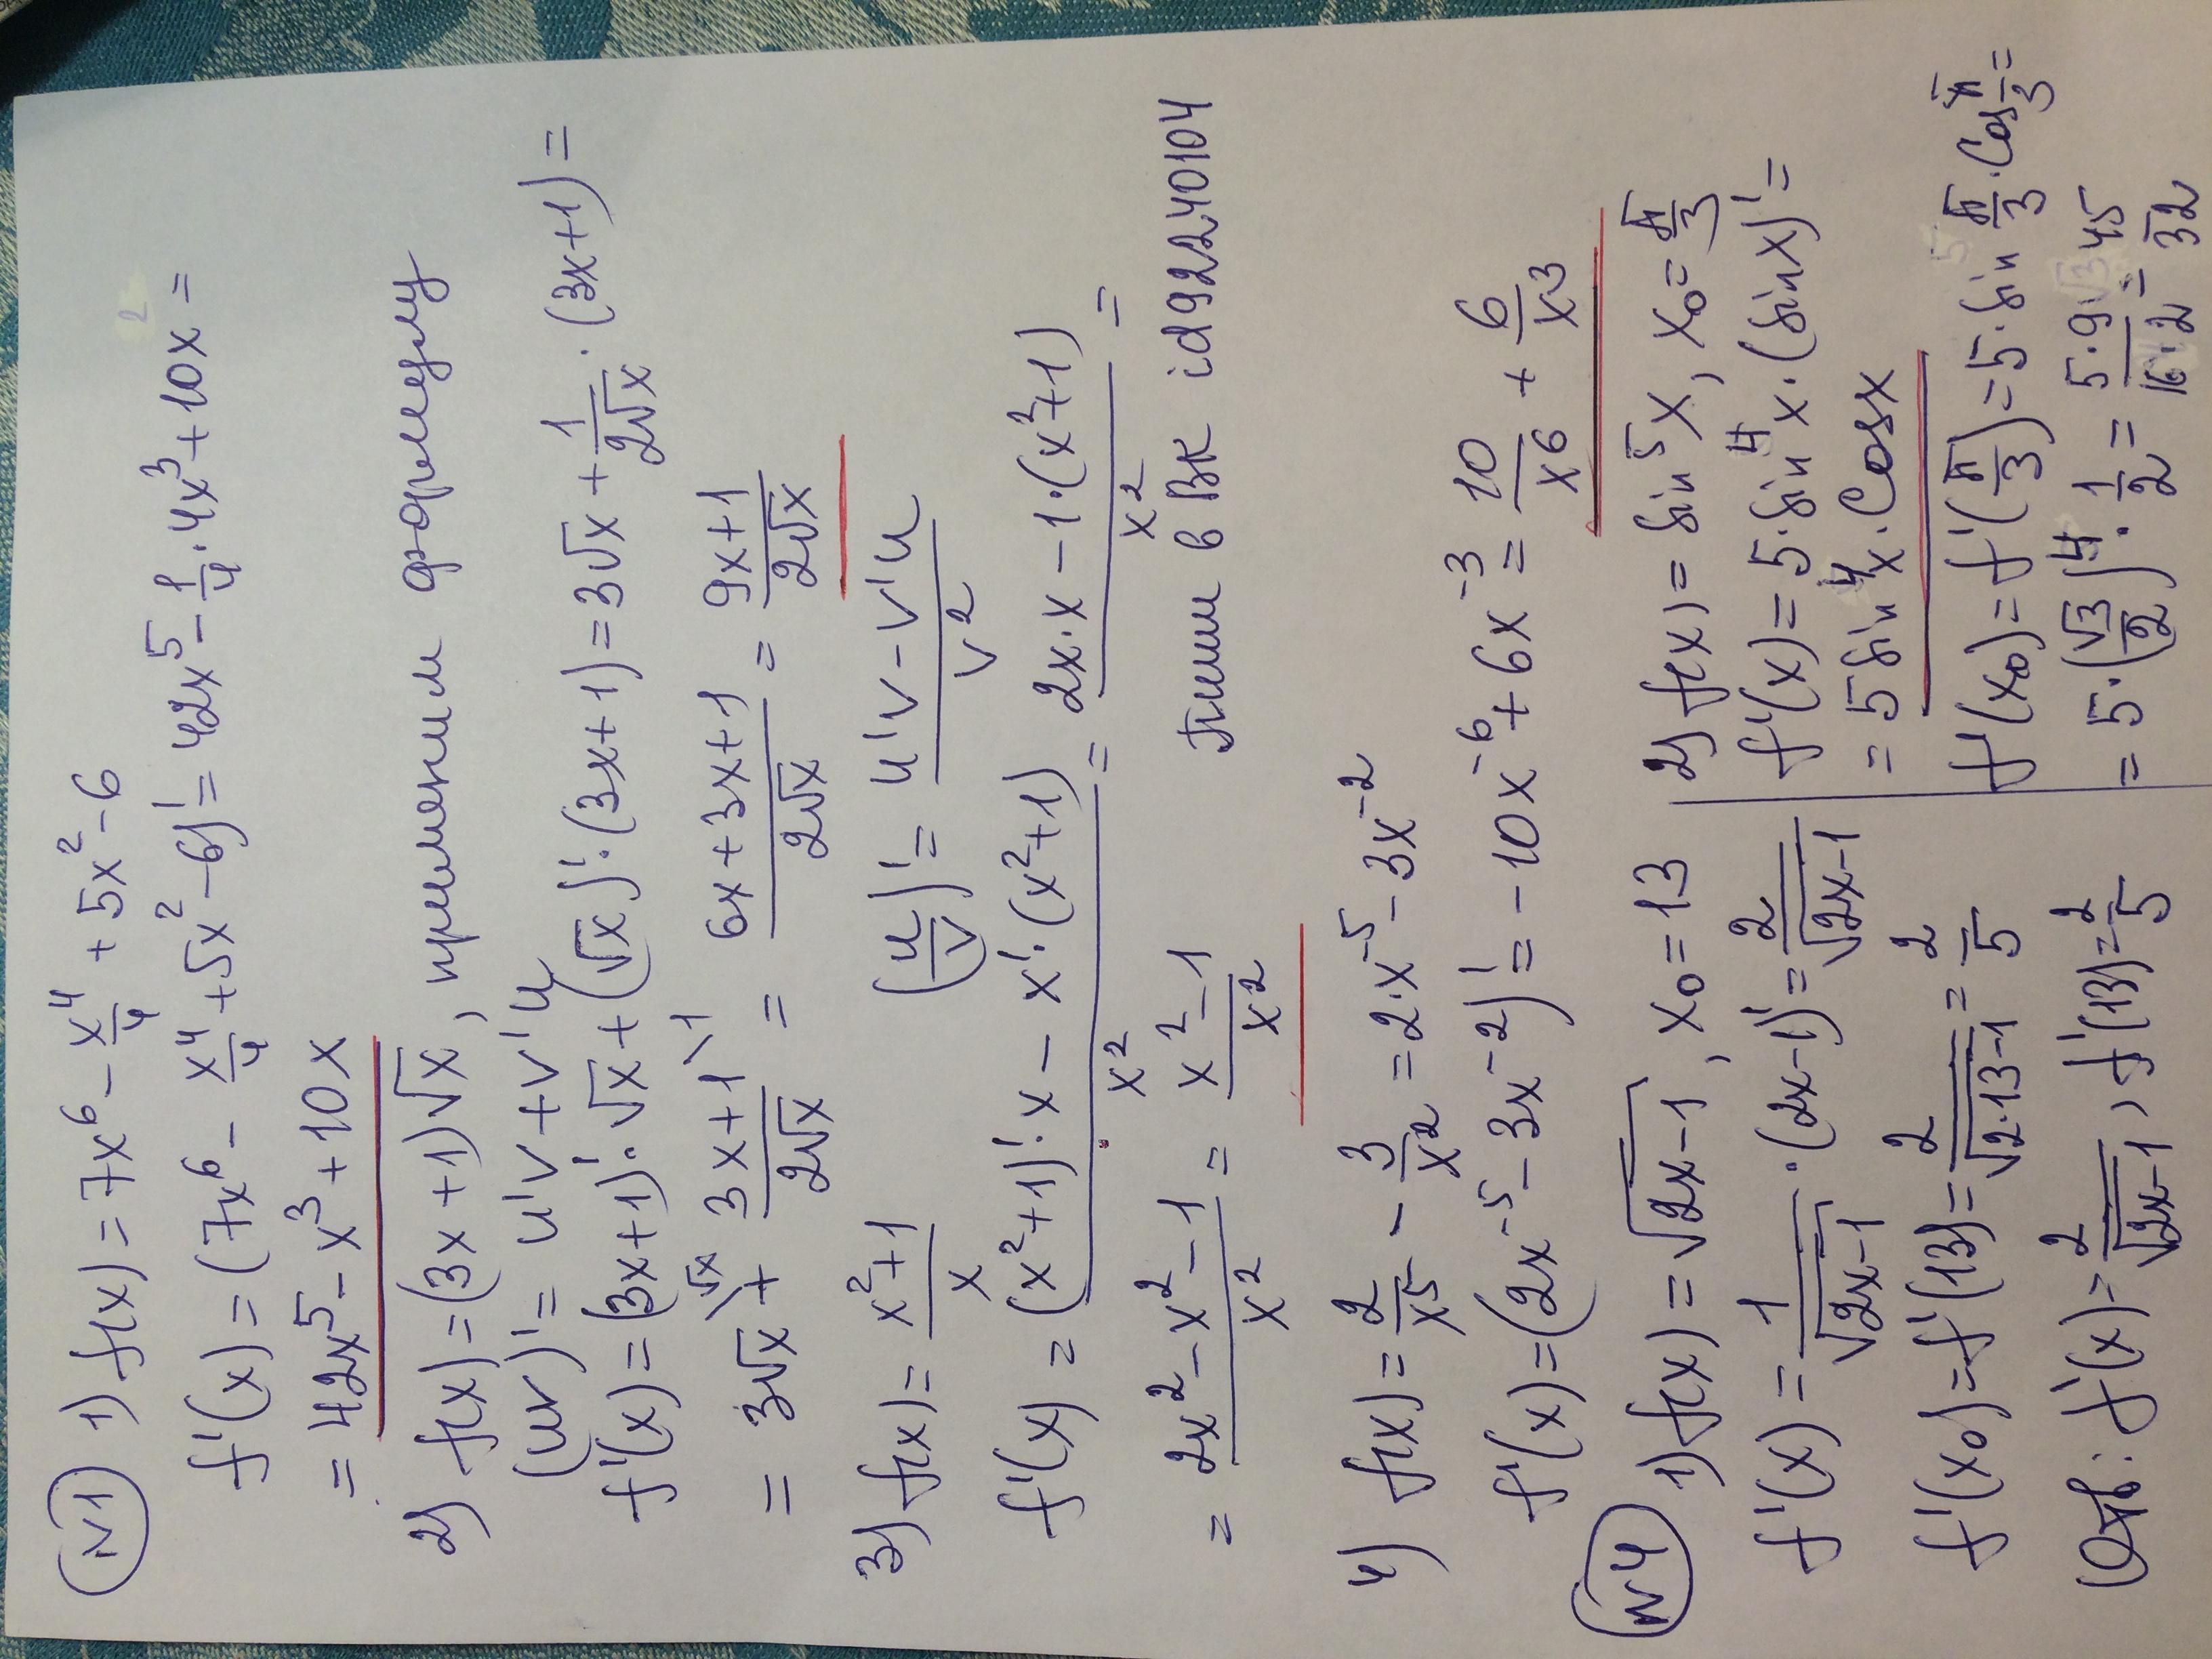 N1 1) f(x) = 7x⁶ - x⁴/4 + 5x² - 6
f'(x) = (7x⁶ - x⁴/4 + 5x² - 6)' = 42x⁵ - 1/4 · 4x³ + 10x =
= 42x⁵ - x³ + 10x
2) f(x) = (3x + 1)√x, применим формулу
(uv)' = u'v + v'u
f'(x) = (3x+1)' · √x + (√x)' · (3x+1) = 3√x + 1/(2√x) · (3x+1) =
= 3√x \√x + (3x+1)/(2√x) \1 = (6x + 3x + 1)/(2√x) = (9x+1)/(2√x)
3) f(x) = (x²+1)/x (u/v)' = (u'v - v'u)/v²
f'(x) = ((x²+1)' · x - x' · (x²+1))/x² = (2x·x - 1·(x²+1))/x² =
= (2x² - x² - 1)/x² = (x² - 1)/x² Пиши в ВК id92240104
4) f(x) = 2/x⁵ - 3/x² = 2·x⁻⁵ - 3x⁻²
f'(x) = (2x⁻⁵ - 3x⁻²)' = -10x⁻⁶ + 6x⁻³ = 10/x6 + 6/x3
N4 1) f(x) = √(2x-1), x₀ = 13
f'(x) = 1/√(2x-1) · (2x-1)' = 2/√(2x-1)
f'(x₀) = f'(13) = 2/√(2·13-1) = 2/5
Отв: f'(x) = 2/√(2x-1), f'(13) = 2/5
2) f(x) = sin⁵x, x₀ = π/3
f'(x) = 5·sin⁴x·(sinx)' =
= 5 sin⁴x · Cosx
f'(x₀) = f'(π/3) = 5·sin π/3 · Cos π/3 =
= 5·(√3/2)⁴ · 1/2 = (5·9)/(16·2) = 45/32